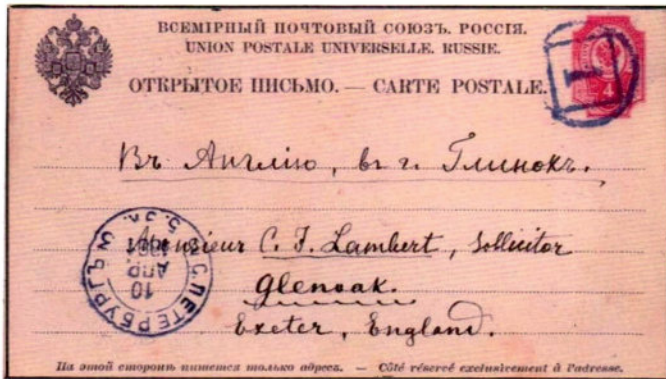 ВСЕМІРНЫЙ ПОЧТОВЫЙ СОЮЗЪ. РОССІЯ.
UNION POSTALE UNIVERSELLE. RUSSIE.
ОТКРЫТОЕ ПИСЬМО. — CARTE POSTALE.
1
4
Въ Англію, въ г. Глинокъ.
Monsieur C. F. Lambert, Sollicitor
Glenoak.
Exeter, England.
С.ПЕТЕРБУРГЪ
10
АПР.
На этой сторонѣ пишется только адресъ. — Côté réservé exclusivement à l'adresse.